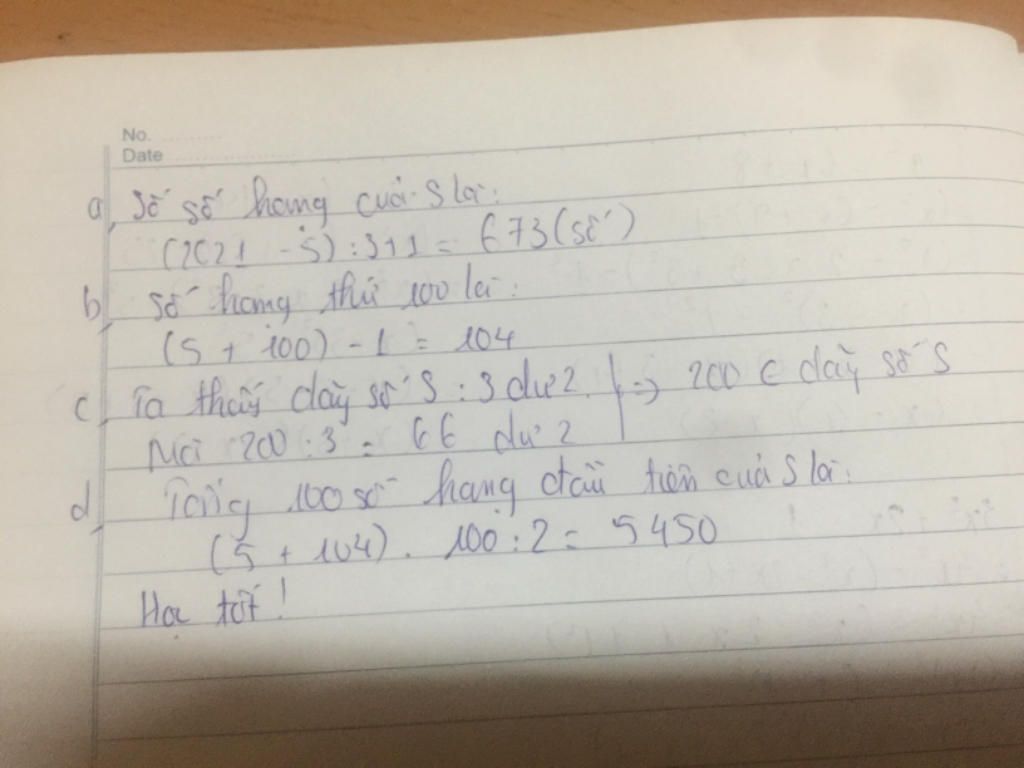 No.
Date
a, Số số hạng của S là:
(2021 - 5) : 3+1 = 673 (số)
b, Số hạng thứ 100 là:
(5 + 100) - 1 = 104
c, Ta thấy dãy số S : 3 dư 2. => 200 ∈ dãy số S
Mà 200 : 3 = 66 dư 2
d, Tổng 100 số hạng đầu tiên của S là:
(5 + 104) . 100 : 2 = 5450
Học tốt!